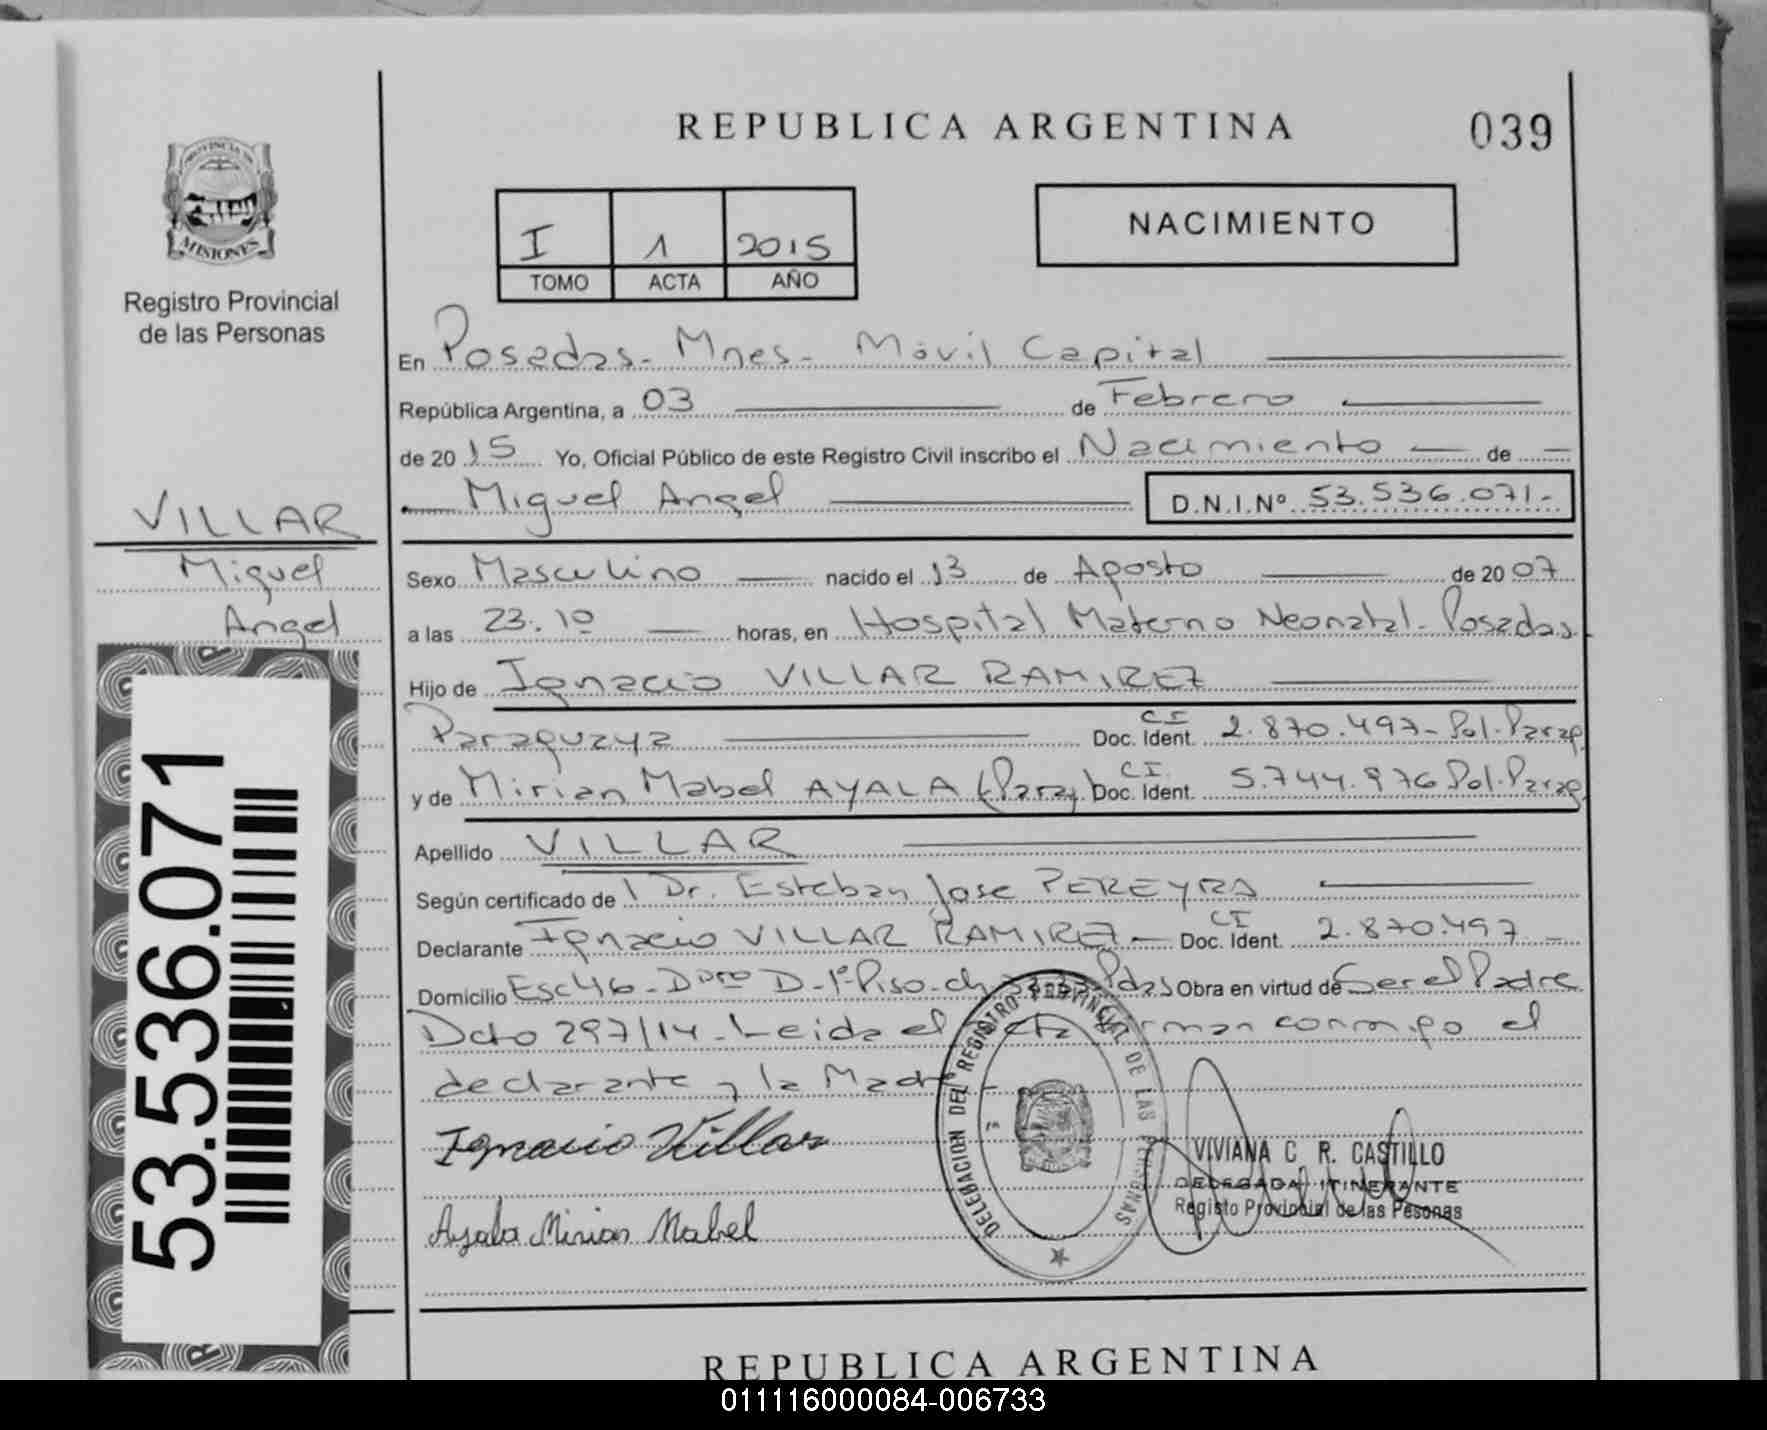 REPUBLICA ARGENTINA
039
PROVINCIA DE
MISIONES
Registro Provincial
de las Personas
I 1 2015
TOMO ACTA AÑO
NACIMIENTO
En Posadas - Mnes - Móvil Capital
República Argentina, a 03 de Febrero
de 20 15 Yo, Oficial Público de este Registro Civil inscribo el Nacimiento de
Miguel Angel D.N.I.Nº 53.536.071.-
VILLAR
Miguel
Angel
Sexo Masculino nacido el 13 de Agosto de 20 07
a las 23:10 horas, en Hospital Materno Neonatal - Posadas
Hijo de Ignacio VILLAR RAMIREZ
Paraguaya Doc. Ident. CI 2.870.497 - Pol. Parag.
y de Mirian Mabel AYALA (Parag) Doc. Ident. C.I. 5.744.976 Pol. Parag.
Apellido VILLAR
Según certificado de Dr. Esteban Jose PEREYRA
Declarante Ignacio VILLAR RAMIREZ - Doc. Ident. CI 2.870.497 -
Domicilio Esc 46 - Dpto D - 1º Piso - ch Pdas Obra en virtud de Ser el Padre
Dcto 297/14 - Leida el acta firman conmigo el
declarante y la Madre -
Ignacio Villar
Ayala Mirian Mabel
DELEGACION DEL REGISTRO PROVINCIAL DE LAS PERSONAS
VIVIANA C. R. CASTILLO
DELEGADA ITINERANTE
Registo Provincial de las Pesonas
53.536.071
REPUBLICA ARGENTINA
011116000084-006733